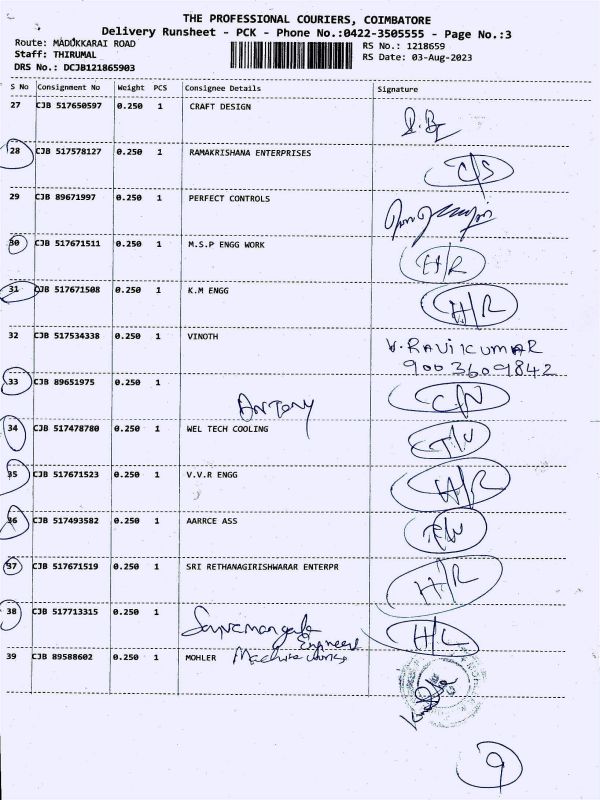 THE PROFESSIONAL COURIERS, COIMBATORE
Delivery Runsheet - PCK - Phone No.:0422-3505555 - Page No.:3
Route: MADUKKARAI ROAD
RS No.: 1218659
Staff: THIRUMAL
RS Date: 03-Aug-2023
DRS No.: DCJB121865903
S No Consignment No Weight PCS Consignee Details Signature
27 CJB 517650597 0.250 1 CRAFT DESIGN
28 CJB 517578127 0.250 1 RAMAKRISHANA ENTERPRISES C/S
29 CJB 89671997 0.250 1 PERFECT CONTROLS
30 CJB 517671511 0.250 1 M.S.P ENGG WORK H/R
31 CJB 517671508 0.250 1 K.M ENGG H/R
32 CJB 517534338 0.250 1 VINOTH V. RAVIKUMAR
9003609842
33 CJB 89651975 0.250 1 ANTONY C/N
34 CJB 517478780 0.250 1 WEL TECH COOLING
35 CJB 517671523 0.250 1 V.V.R ENGG H/R
36 CJB 517493582 0.250 1 AARRCE ASS
37 CJB 517671519 0.250 1 SRI RETHANAGIRISHWARAR ENTERPR H/R
38 CJB 517713315 0.250 1 H/L
39 CJB 89588602 0.250 1 MOHLER
9